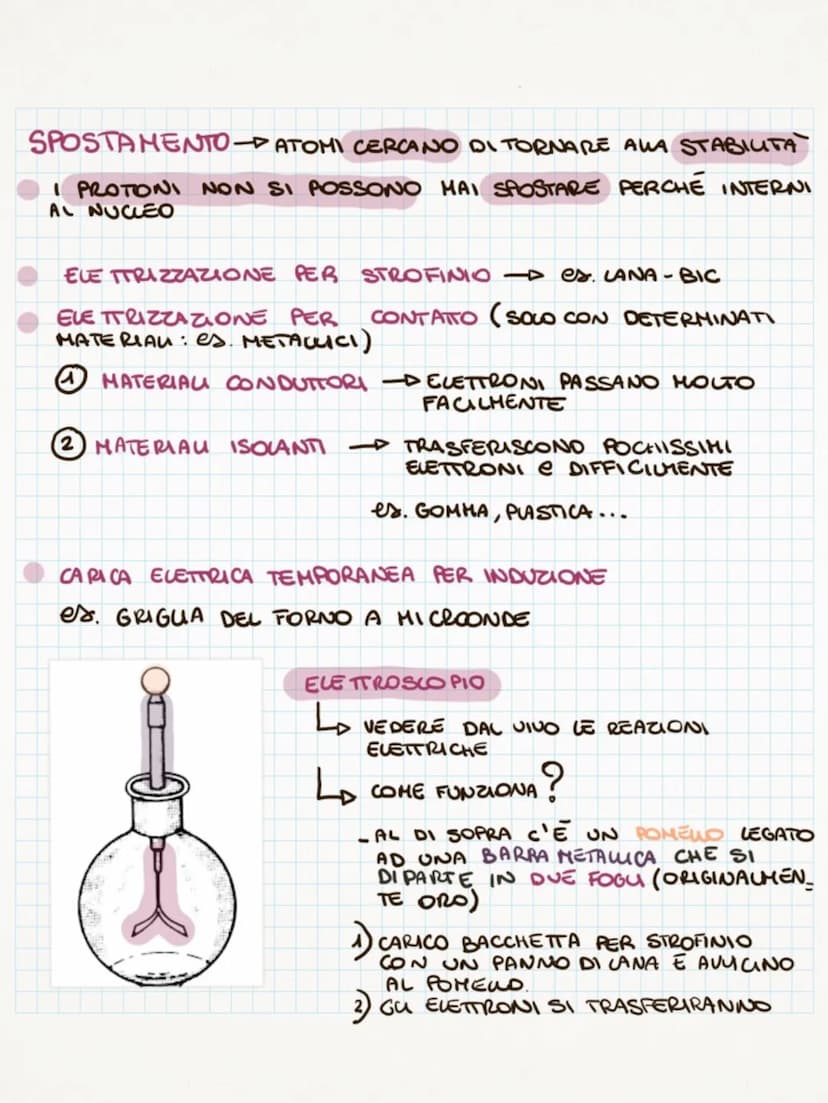 SPOSTAMENTO → ATOMI CERCANO DI TORNARE ALLA STABILITÀ
I PROTONI NON SI POSSONO MAI SPOSTARE PERCHÉ INTERNI
AL NUCLEO
ELETTRIZZAZIONE PER STROFINIO → es. LANA - BIC
ELETTRIZZAZIONE PER CONTATTO (SOLO CON DETERMINATI
MATERIALI: es. METALLICI)
1 MATERIALI CONDUTTORI → ELETTRONI PASSANO MOLTO
FACILMENTE
2 MATERIALI ISOLANTI → TRASFERISCONO POCHISSIMI
ELETTRONI e DIFFICILMENTE
es. GOMMA, PLASTICA...
CARICA ELETTRICA TEMPORANEA PER INDUZIONE
es. GRIGLIA DEL FORNO A MICROONDE
ELETTROSCOPIO
↳ VEDERE DAL VIVO LE REAZIONI
ELETTRICHE
↳ COME FUNZIONA?
- AL DI SOPRA C'È UN POMELLO LEGATO
AD UNA BARRA METALLICA CHE SI
DIPARTE IN DUE FOGLI (ORIGINALMEN_
TE ORO)
1) CARICO BACCHETTA PER STROFINIO
CON UN PANNO DI LANA E AVVICINO
AL POMELLO.
2) GLI ELETTRONI SI TRASFERIRANNO